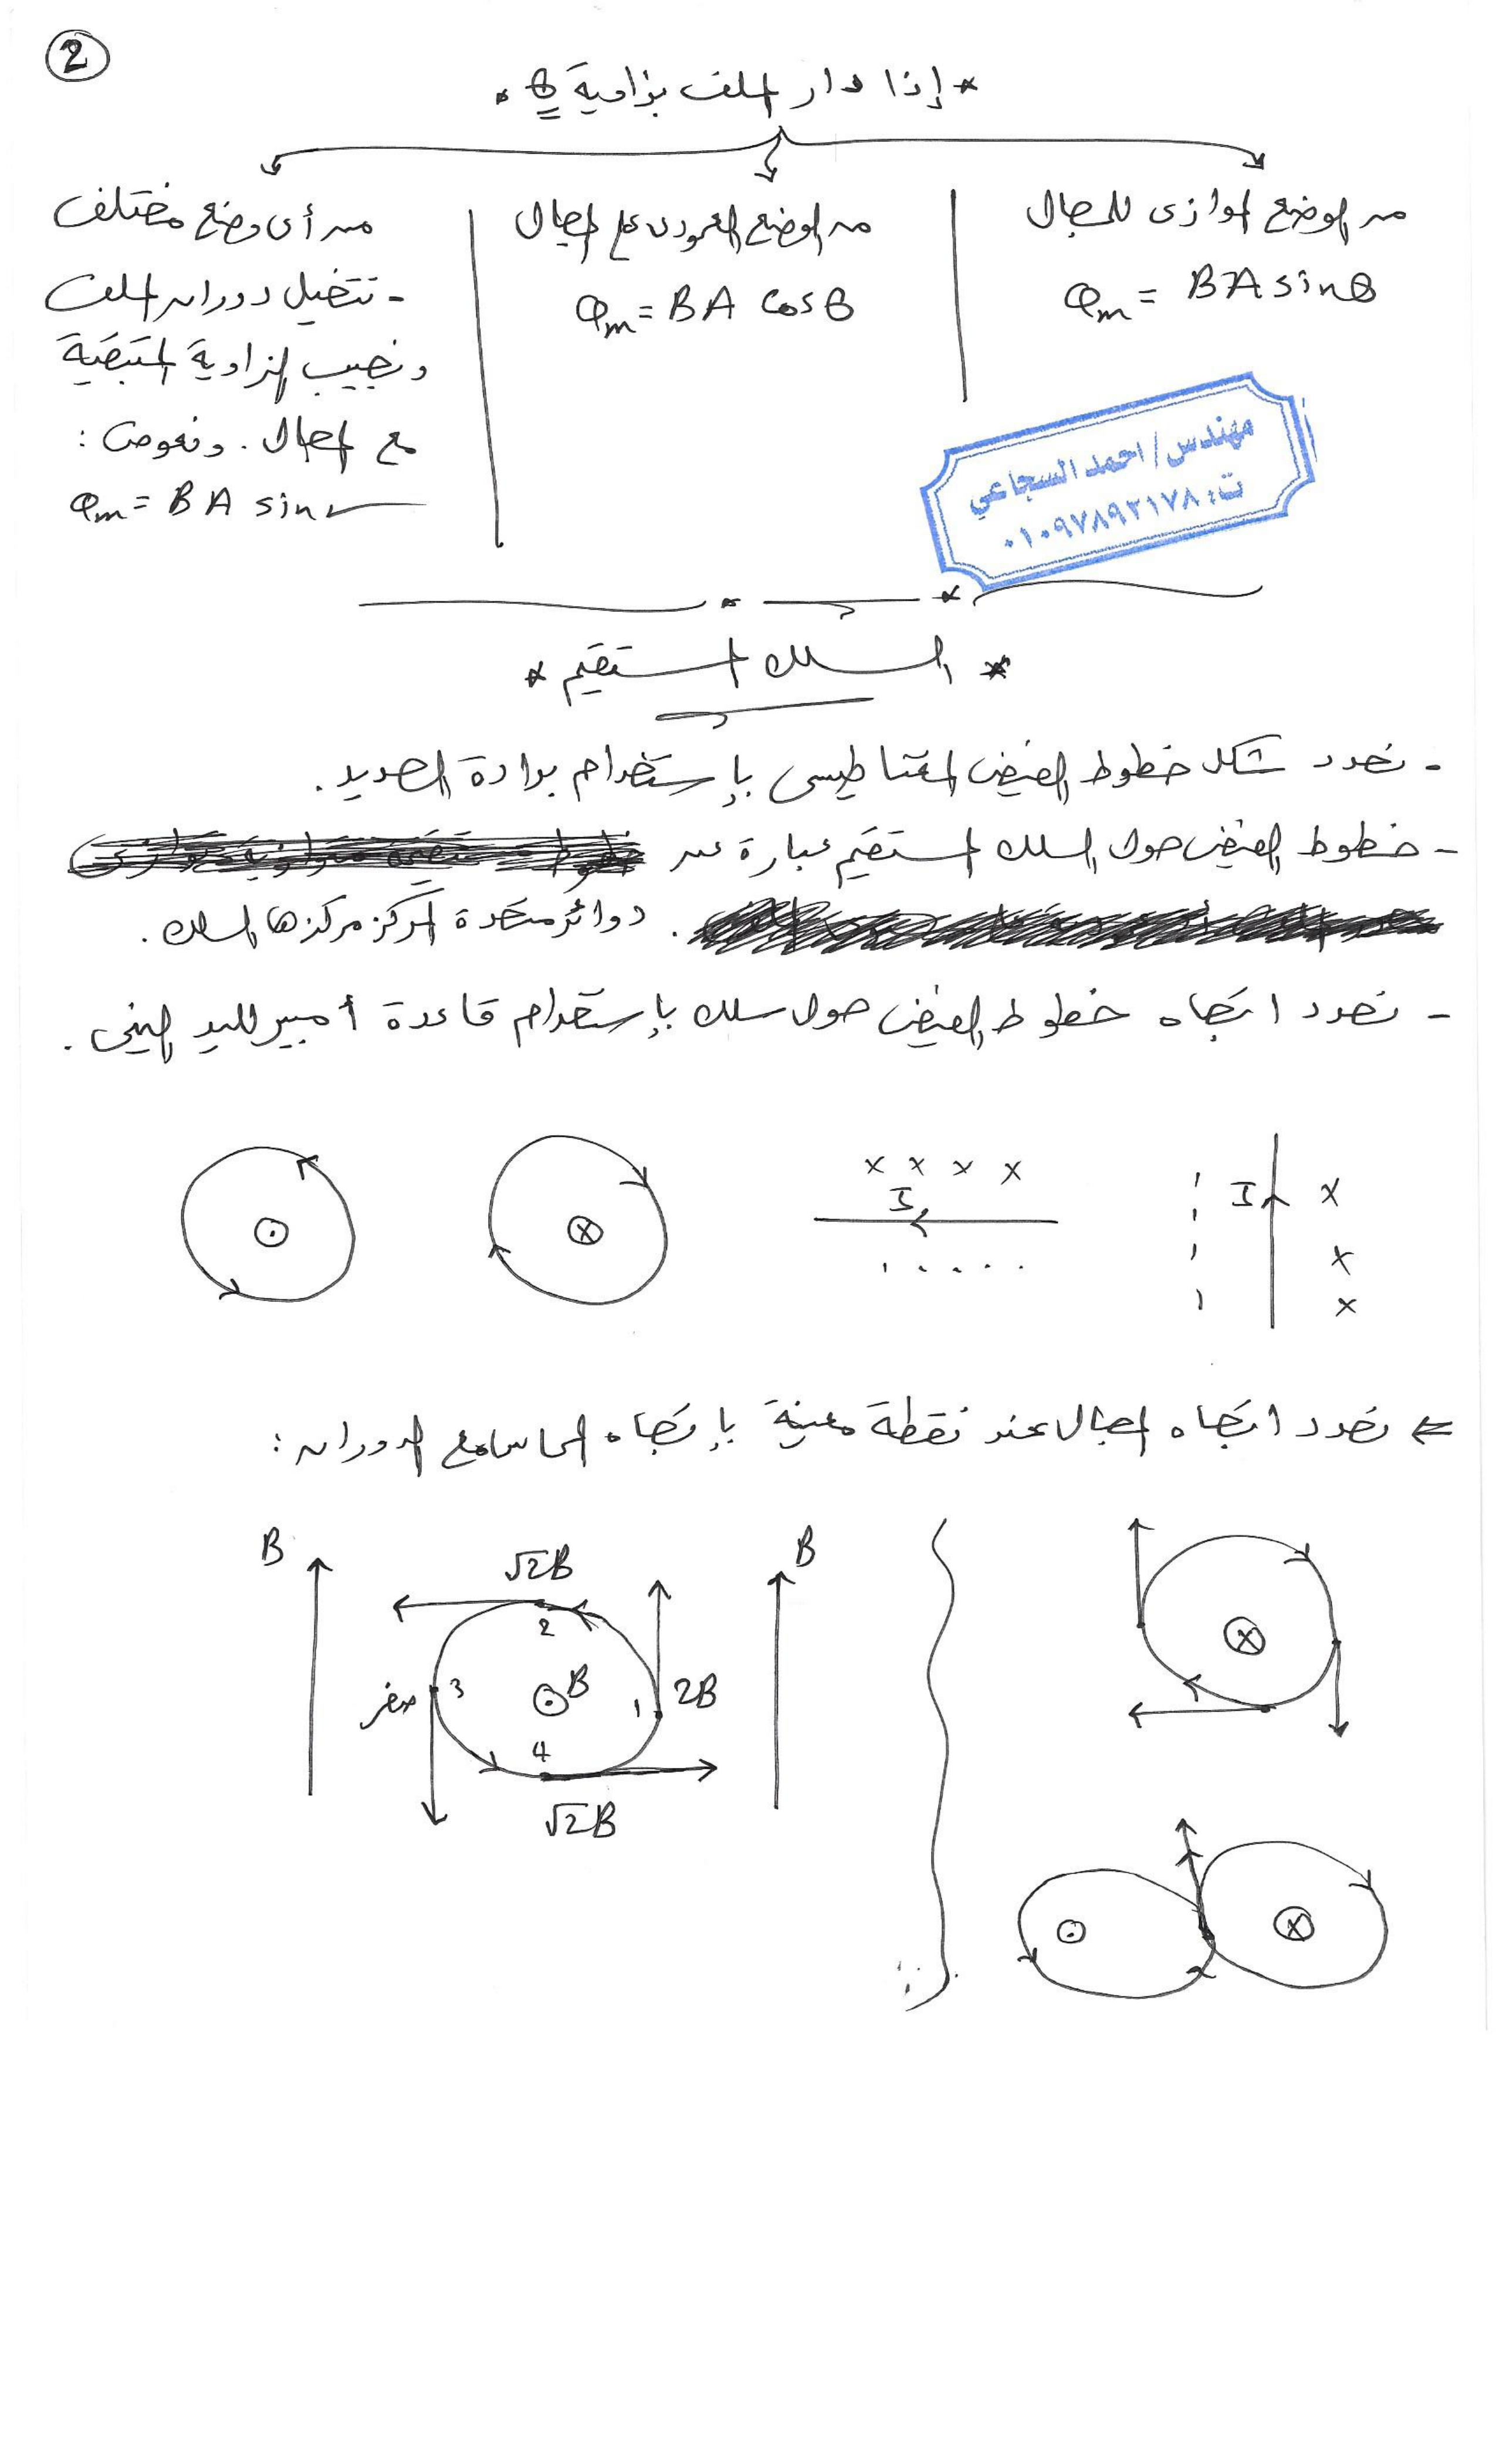 2
* إذا دار الملف بزاوية θ *
من الوضع الموازى للمجال
φm = BA sinθ
من الوضع العمودى على المجال
φm = BA cosθ
من أى وضع مختلف
- نتخيل دوران الملف
ونجيب الزاوية المتبقية
مع المجال . ونعوض :
φm = BA sin
مهندس/ احمد السجاعي
ت: ٠١٠٩٧٨٩٢١٧٨
* السلك المستقيم *
- نحدد شكل خطوط الفيض المغناطيسى بإستخدام برادة الحديد .
- خطوط الفيض حول السلك المستقيم عبارة عن
دوائر متحدة المركز مركزها السلك .
- نحدد اتجاه خطوط الفيض حول سلك بإستخدام قاعدة أمبير لليد اليمنى .
x x x x
I
. . . . .
I
x
x
x
⇐ نحدد اتجاه المجال عند نقطة معينة بإتجاه المماس مع الدوران :
B
√2B
B
2
صفر
3
B
1
2B
4
√2B